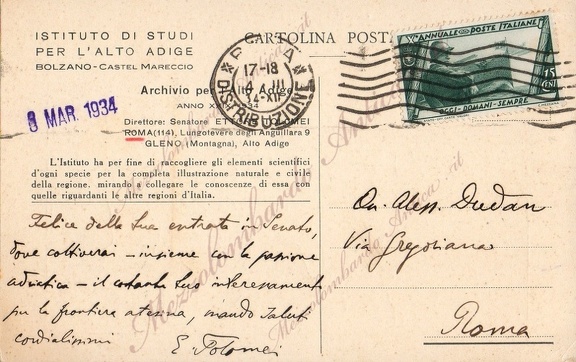 ISTITUTO DI STUDI
PER L'ALTO ADIGE
BOLZANO - CASTEL MARECCIO
CARTOLINA POSTA
X ANNUALE POSTE ITALIANE
15
CENT
OGGI - DOMANI - SEMPRE
ROMA
17-18
III
34 XII
DISTRIBUZIONE
8 MAR. 1934
Archivio per l'Alto Adige
ANNO 1934
Direttore: Senatore ETTORE TOLOMEI
ROMA (114), Lungotevere degli Anguillara 9
GLENO (Montagna), Alto Adige
L'Istituto ha per fine di raccogliere gli elementi scientifici
d'ogni specie per la completa illustrazione naturale e civile
della regione, mirando a collegare le conoscenze di essa con
quelle riguardanti le altre regioni d'Italia.
Felice della tua entrata in Senato,
dove coltiverai - insieme con la passione
adriatica - il costante tuo interessamento
per la frontiera atesina, mando saluti
cordialissimi
E. Tolomei
On. Aless. Dudan
Via Gregoriana
Roma
Mezzolombardo Antica .it
Mezzolombardo Antica .it